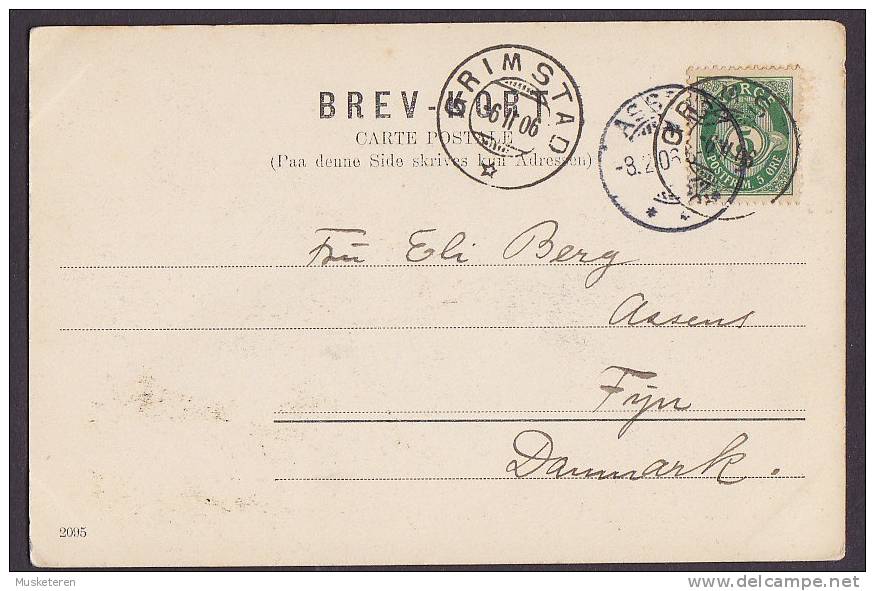 BREV-KORT
CARTE POSTALE
(Paa denne Side skrives kun Adressen)
GRIMSTAD
-6 II 06
ASSENS
-8.2.06
NORGE
5
POSTFRIM 5 ØRE
Fru Eli Berg
Assens
Fyn
Danmark.
2095
Musketeren
delcampe.net